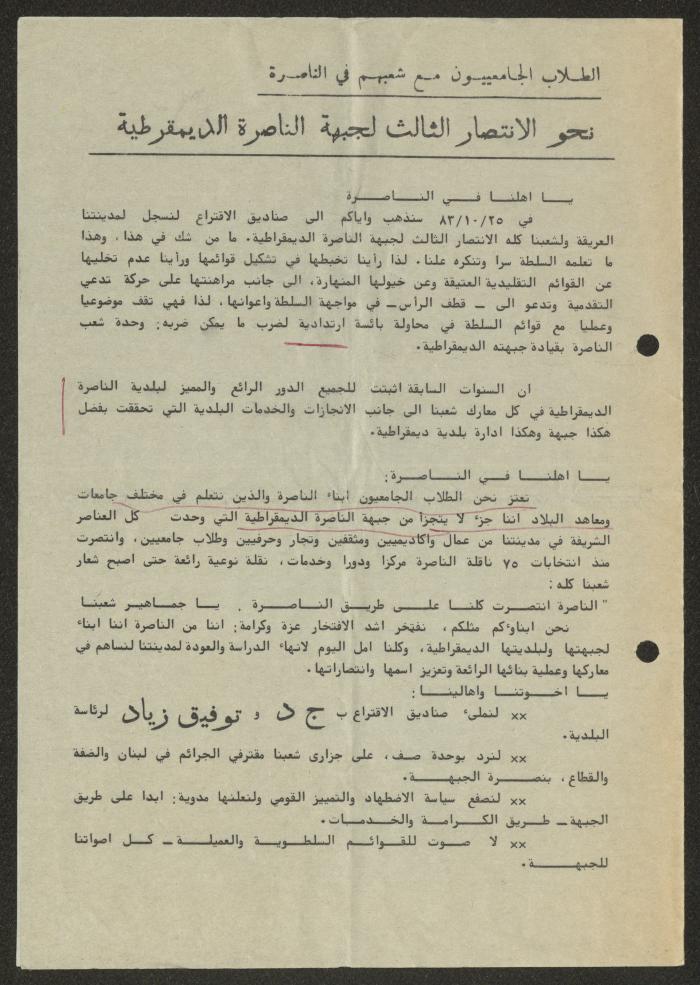 الطلاب الجامعييون مع شعبهم في الناصرة
نحو الانتصار الثالث لجبهة الناصرة الديمقرطية
يا اهلنا في الناصرة
في ٨٣/١٠/٢٥ سنذهب واياكم الى صناديق الاقتراع لنسجل لمدينتنا
العريقة ولشعبنا كله الانتصار الثالث لجبهة الناصرة الديمقراطية. ما من شك في هذا، وهذا
ما تعلمه السلطة سرا وتنكره علنا. لذا رأينا تخبطها في تشكيل قوائمها ورأينا عدم تخليها
عن القوائم التقليدية العتيقة وعن خيولها المنهارة، الى جانب مراهنتها على حركة تدعي
التقدمية وتدعو الى ــ قطف الرأس ــ في مواجهة السلطة واعوانها، لذا فهي تقف موضوعيا
وعمليا مع قوائم السلطة في محاولة بائسة ارتدادية لضرب ما يمكن ضربه: وحدة شعب
الناصرة بقيادة جبهته الديمقراطية.
ان السنوات السابقة اثبتت للجميع الدور الرائع والمميز لبلدية الناصرة
الديمقراطية في كل معارك شعبنا الى جانب الانجازات والخدمات البلدية التي تحققت بفضل
هكذا جبهة وهكذا ادارة بلدية ديمقراطية.
يا اهلنا في الناصرة:
نعتز نحن الطلاب الجامعيون ابناء الناصرة والذين نتعلم في مختلف جامعات
ومعاهد البلاد اننا جزء لا يتجزأ من جبهة الناصرة الديمقراطية التي وحدت كل العناصر
الشريفة في مدينتنا من عمال واكاديميين ومثقفين وتجار وحرفيين وطلاب جامعيين، وانتصرت
منذ انتخابات ٧٥ ناقلة الناصرة مركزا ودورا وخدمات، نقلة نوعية رائعة حتى اصبح شعار
شعبنا كله:
" الناصرة انتصرت كلنا على طريق الناصرة . يا جماهير شعبنا
نحن ابناوءكم مثلكم، نفتخر اشد الافتخار عزة وكرامة: اننا من الناصرة اننا ابناء
لجبهتها ولبلديتها الديمقراطية، وكلنا امل اليوم لانهاء الدراسة والعودة لمدينتنا لنساهم في
معاركها وعملية بنائها الرائعة وتعزيز اسمها وانتصاراتها.
يا اخوتنا واهالينا:
×× لنملىء صناديق الاقتراع ب ج د و توفيق زياد لرئاسة
البلدية.
×× لنرد بوحدة صف، على جزارى شعبنا مقترفي الجرائم في لبنان والضفة
والقطاع، بنصرة الجبهة.
×× لنصفع سياسة الاضطهاد والتمييز القومي ولنعلنها مدوية: ابدا على طريق
الجبهة ــ طريق الكرامة والخدمات.
×× لا صوت للقوائم السلطوية والعميلة ــ كل اصواتنا
للجبهة.